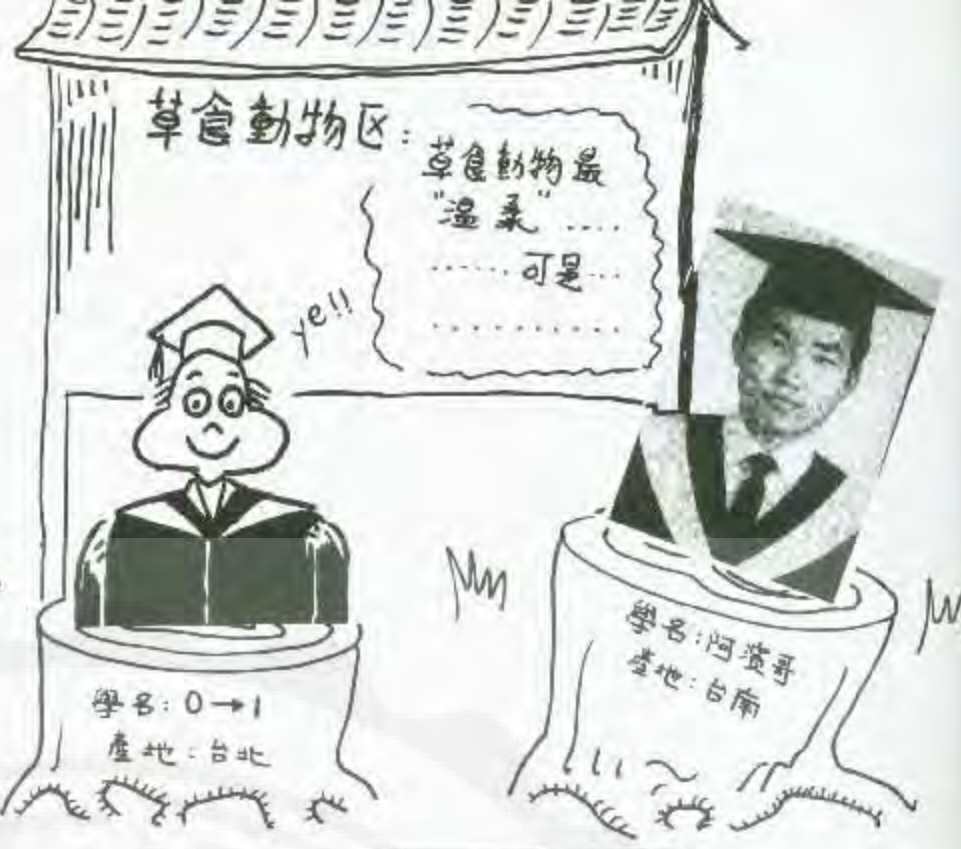 草食動物区：
草食動物最
"溫柔"....
......可是...
..........
ye!!
學名：0→1
產地：台北
學名：阿濱哥
產地：台南